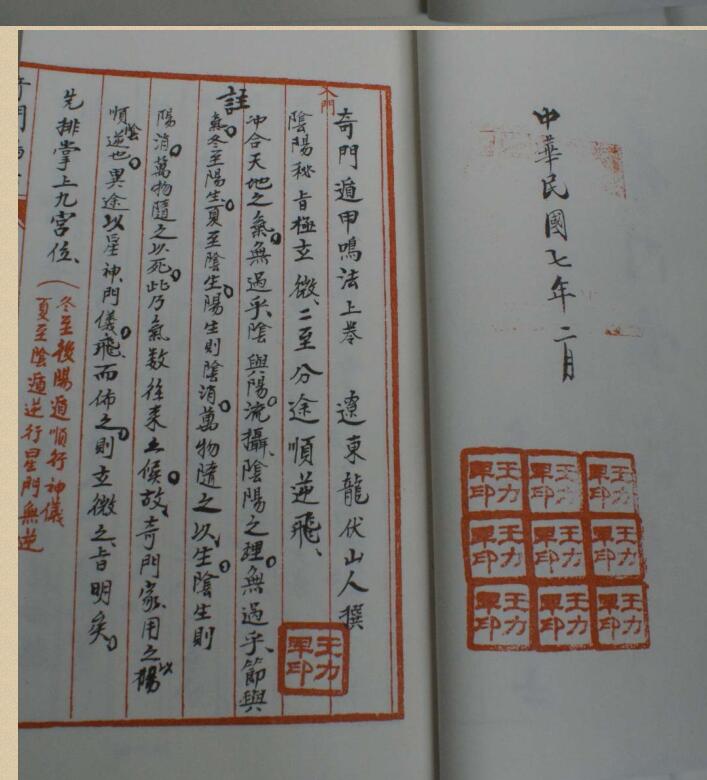 中華民國七年二月
王力軍印
王力軍印
王力軍印
王力軍印
王力軍印
王力軍印
王力軍印
王力軍印
王力軍印
奇門遁甲鳴法上卷 遼東龍伏山人撰
王力軍印
入門
陰陽秘旨極玄微、二至分途順逆飛、
註
冲合天地之氣。無過乎、陰與陽流。攝、陰陽之理。無過乎、節與
氣。冬至陽生。夏至陰生。陽生則陰消。萬物隨之以生。陰生則
陽消。萬物隨之以死。此乃氣数往来之候。故、奇門家、用之以陽
順陰逆也。異途以星神、門儀。飛、而佈之。則玄微之、旨明矣。
先排掌上九宮位、
(冬至後陽遁順行神儀
夏至陰遁逆行星門無逆